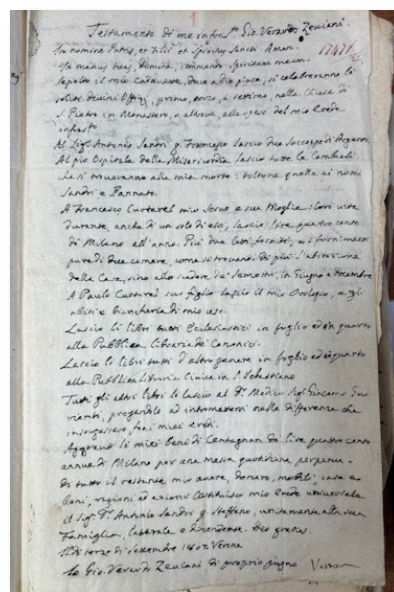 Testamento di me infra.to Gio. Verardo Zeviani.
In nomine Patris, et Filii et Spiritus Sancti Amen.
In manus tuas, Domine, commendo Spiritum meum.
Sepolto il mio Cadavere, dove a dio piace, si celebreranno li
soliti divini Offizj, primo, terzo, e settimo, nella Chiesa di
S. Pietro in Monastero, o altrove, alle spese del mio Erede
infrasto.
Al Sig. Antonio Sandri q. Francesco lascio due
Al pio Ospitale della Misericordia lascio tutte le Cambiali
che si troveranno alla mia morte: toltone quelle ai nomi
Sandri e Pannato.
A Francesco Curterel mio Servo e sua Moglie: loro vita
durante, anche di un solo di essi, lascio lire quattro cento
di Milano all'anno. Più due letti forniti, e i fornimenti
pure di due camere, come si trovano. Di più l'abitazione
della Casa, sino allo scadere de' Semestri, in Giugno e Decembre.
A Paulo Curterel suo figlio lascio il mio Orologio, e gli
abiti e biancheria di mio uso.
Lascio li libri tutti Ecclesiastici in foglio ed in quarto
alla Pubblica libreria de' Canonici.
Lascio li libri tutti d'altro genere in foglio ed in quarto
alla Pubblica libraria Civica in S. Sebastiano
Tutti gli altri libri li lascio al Dr. Medico Sig.
pregandolo ad intromettersi nelle differenze che
insorgessero fra i miei eredi.
Aggravo li miei beni di Centagnan di lire quattro cento
annue di Milano per una messa quotidiana perpetua.
Di tutto il restante mio avere, denaro, mobili, case e
beni, ragioni ed azioni costituisco mio Erede universale
il Sig. Dr. Antonio Sandri q. Steffano, unitamente alla sua
Famiglia, laterale e discendente. Deo gratias.
Il di terzo di Settembre 1802 Verona
Io Gio. Verardo Zeviani di proprio pugno